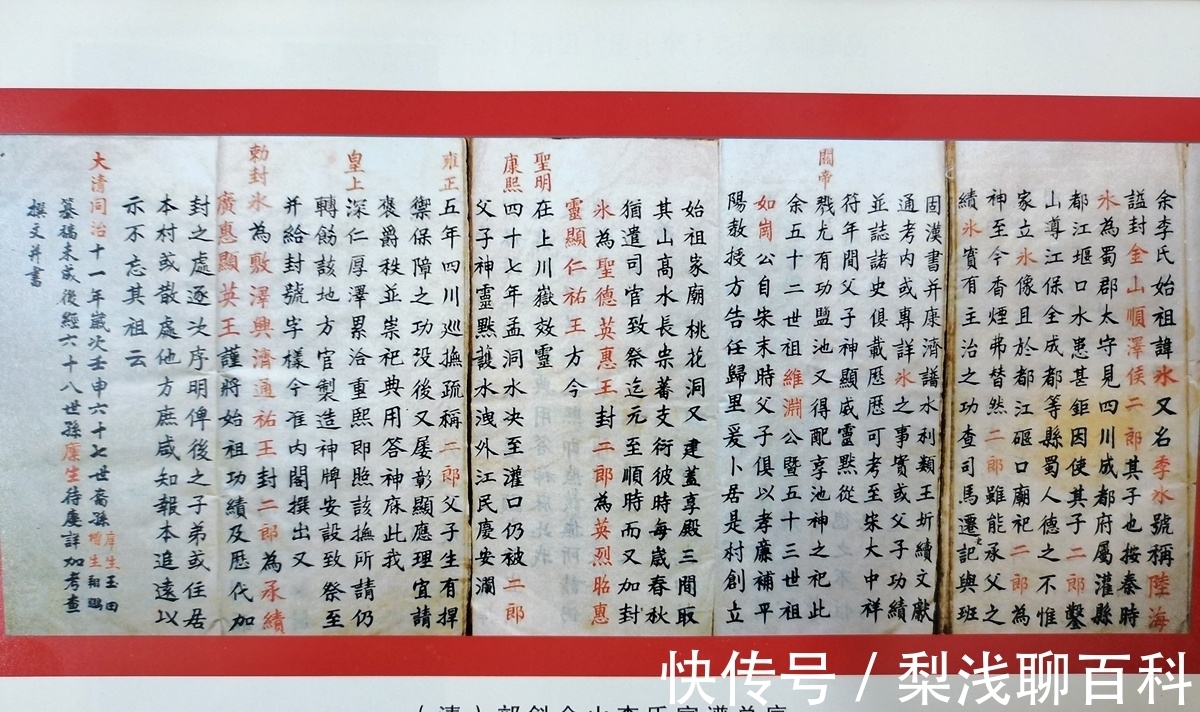 余李氏始祖諱冰又名季水號稱陸海
謚封金山順澤侯二郎其子也按秦時
冰為蜀郡太守見四川成都府屬灌縣
都江堰口水患甚鉅因使其子二郎鑿
山導江保全成都等縣蜀人德之不惟
家立冰像且於都江堰口廟祀二郎為
神至今香煙弗替然二郎雖能承父之
績冰實有主治之功查司馬遷記與班
固漢書并康濟譜水利類王圻續文獻
通考內或專詳冰之事實或父子功績
並誌諸史俱載歷歷可考至宋大中祥
符年間父子神顯威靈默從
關帝
戮尤有功盬池又得配享池神之祀此
余五十二世祖維淵公暨五十三世祖
如崗公自宋末時父子俱以孝廉補平
陽教授方告任歸里爰卜居是村創立
始祖家廟桃花洞又建蓋享殿三間取
其山高水長宗蕃支衍彼時每歲春秋
猶遣司官致祭迄元至順時而又加封
冰為聖德英惠王封二郎為英烈昭惠
靈顯仁祐王方今
聖明在上川嶽效靈
康熙四十七年孟洞水決至灌口仍被二郎
父子神靈默護水洩外江民慶安瀾
雍正五年四川巡撫疏稱二郎父子生有捍
禦保障之功沒後又屡彰顯應理宜請
褒爵秩並崇祀典用答神庥此我
皇上深仁厚澤累洽重熙即照該撫所請仍
轉飭該地方官製造神牌安設致祭至
并給封號字樣今准內閣撰出又
勅封冰為敷澤興濟通祐王封二郎為承績
廣惠顯英王謹將始祖功績及歷代加
封之處逐次序明俾後之子弟或住居
本村或散處他方庶咸知報本追遠以
示不忘其祖云
大清同治十一年歲次壬申六十七世裔孫庠生玉田增生翔鵾
纂稿未成後經六十八世孫廩生待慶詳加考查
撰文并書
快传号 / 梨浅聊百科